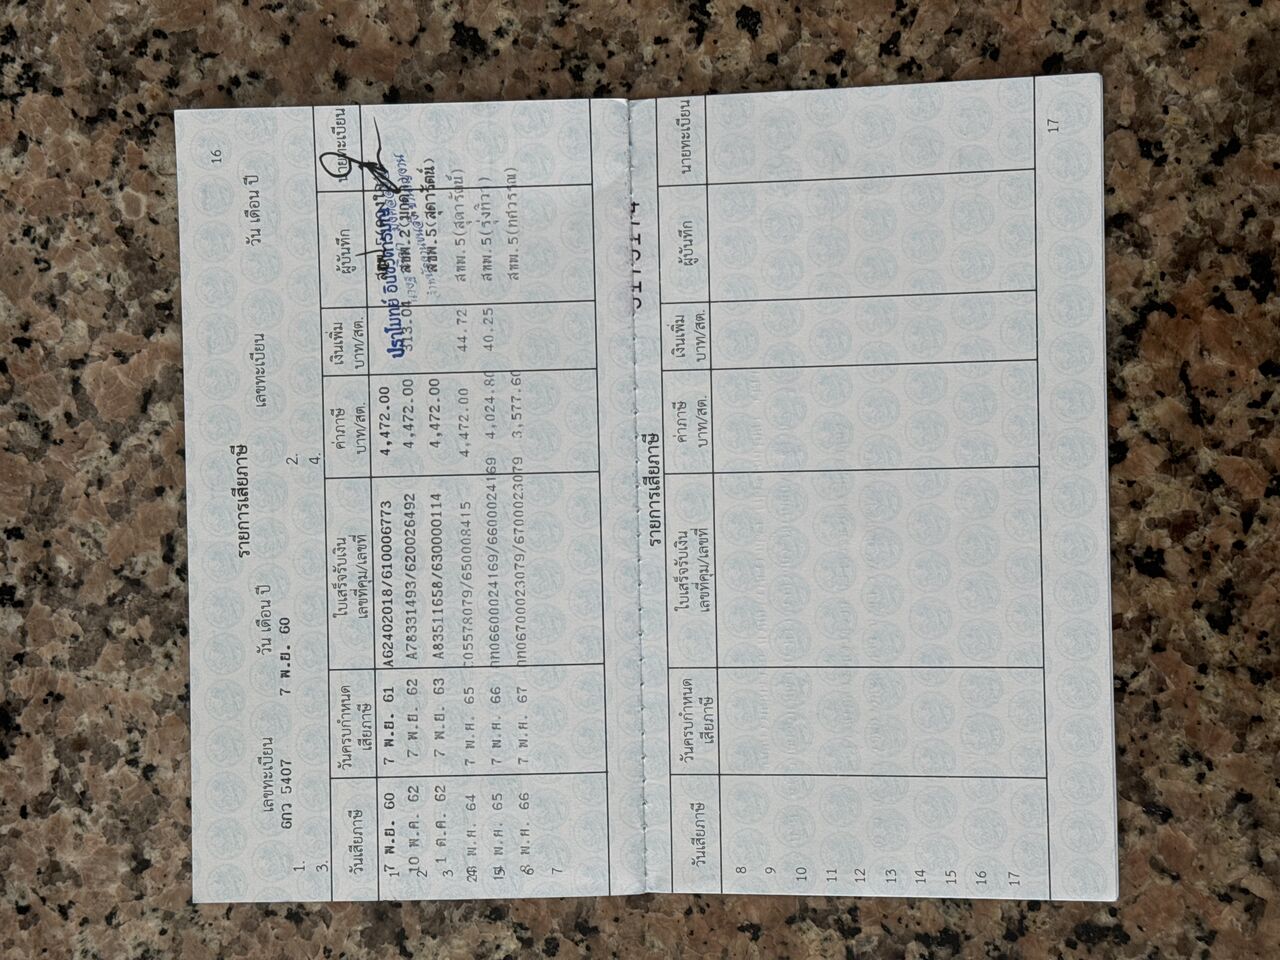 16
รายการเสียภาษี
เลขทะเบียน วัน เดือน ปี เลขทะเบียน วัน เดือน ปี
1. 6กว 5407 7 พ.ย. 60 2.
3. 4.
วันเสียภาษี วันครบกำหนดเสียภาษี ใบเสร็จรับเงิน เลขที่คุม/เลขที่ ค่าภาษี บาท/สต. เงินเพิ่ม บาท/สต. ผู้บันทึก นายทะเบียน
1 7 พ.ย. 60 7 พ.ย. 61 A62402018/610006773 4,472.00
2 10 พ.ค. 62 7 พ.ย. 62 A78331493/620026492 4,472.00 313.04 สขพ.2
3 1 ต.ค. 62 7 พ.ย. 63 A83511658/630000114 4,472.00 สขพ.5(สุดารัตน์)
พ.ย. 64 7 พ.ย. 65 05578079/650008415 4,472.00 44.72 สขพ.5(สุดารัตน์)
พ.ย. 65 7 พ.ย. 66 066000024169/6600024169 4,024.80 40.25 สขพ.5(รุ่งทิวา)
6 พ.ย. 66 7 พ.ย. 67 067000023079/6700023079 3,577.60 สขพ.5(ทศวรรณ)
7
รายการเสียภาษี
วันเสียภาษี วันครบกำหนดเสียภาษี ใบเสร็จรับเงิน เลขที่คุม/เลขที่ ค่าภาษี บาท/สต. เงินเพิ่ม บาท/สต. ผู้บันทึก นายทะเบียน
8
9
10
11
12
13
14
15
16
17
17